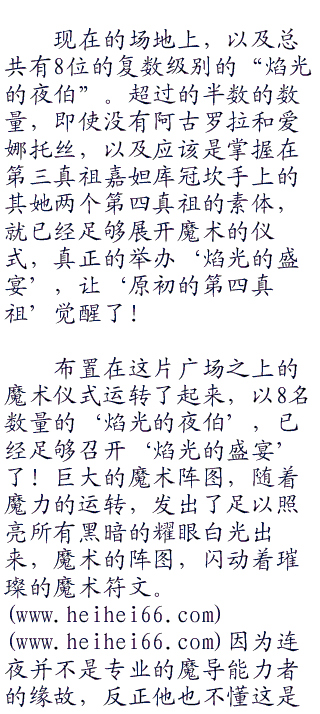 现在的场地上，以及总
共有8位的复数级别的“焰光
的夜伯”。超过的半数的数
量，即使没有阿古罗拉和爱
娜托丝，以及应该是掌握在
第三真祖嘉妲库冠坎手上的
其她两个第四真祖的素体，
就已经足够展开魔术的仪
式，真正的举办‘焰光的盛
宴’，让‘原初的第四真
祖’觉醒了！
布置在这片广场之上的
魔术仪式运转了起来，以8名
数量的‘焰光的夜伯’，已
经足够召开‘焰光的盛宴’
了！巨大的魔术阵图，随着
魔力的运转，发出了足以照
亮所有黑暗的耀眼白光出
来，魔术的阵图，闪动着璀
璨的魔术符文。
(www.heihei66.com)
(www.heihei66.com)因为连
夜并不是专业的魔导能力者
的缘故，反正他也不懂这是